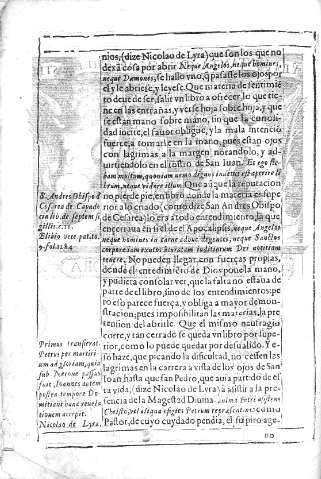 nios, (dize Nicolao de Lyra) que son los que no
dexã cosa por abrir Neque Angelos, neque homines,
neque Dæmones, se hallo vno, q̃ passasse los ojos por
el y le abriesse, y leyesse. Que materia de sentimiẽ
to deue de ser, salir vn libro a ofrecer, lo que tie-
ne en las entrañas, y vese hoja sobre hoja, y que
se estan mano sobre mano, sin que la curiosi-
dad incite, el fauor obligue, y la mala intenciõ
fuerce, a tomarle en la mano; pues estan ojos
con lagrimas a la margen notandolo, y ad-
uirtiendolo en el rostro de San Iuan. Et ego fle-
bam multum, quoniam nemo dignus inuetus est aperire li-
brum, neque videre illum. Que aũque la reputacion
no pierde pie, en libro donde la materia es supe-
rior a lo criado, como dize San Andres Obispo
de Cesarea; lo era a todo entendimiento, la que
encerraua en si el de el Apocalipsis, neque Angelos
neque homines in carne adhuc degentes, neque Sanctos
corporibus exutos diuinorum iudiciorum Dei
tenere. No pueden llegar con fuerças propias,
donde el entendimiẽto de Dios pone la mano,
y pudiera consolar ver, que la falta no estaua de
parte de el libro, sino de los entendimientos; pe
ro esso parece fuerça, y obliga a mayor demon-
stracion; pues impossibilitan las materias, la pre
tension del abrirle. Que el mismo naufragio
corre, y tan cerrado se queda vn libro por supe-
rior, como lo puede quedar por desualido. Y es-
so haze, que picando la dificultad, no cessen las
lagrimas en la carrera a vista de los ojos de San
Ioan, hasta que san Pedro, que aui a partido de es
ta vida, (dize Nicolao de Lyra) â assistir a la pre
sencia de la Magestad Diuina
Christo, vel aliqua effigies Petrum repræsentans como
Pastor, de cuyo cuydado pendia, el supiro age-
S. Andres Obispo d̃
Cesarea de Capado
cia lib. de septem si
gillis c. 11.
Bibliõ vete. pat. to.
Primus transierat
Petrus per martiri
um ad gloriam, quia
sub Nerone passus
fuit, Ioannes autem
postea tempore Do
mitiani hanc reuela
tionem accepit.
Nicolao de Lyra.
no